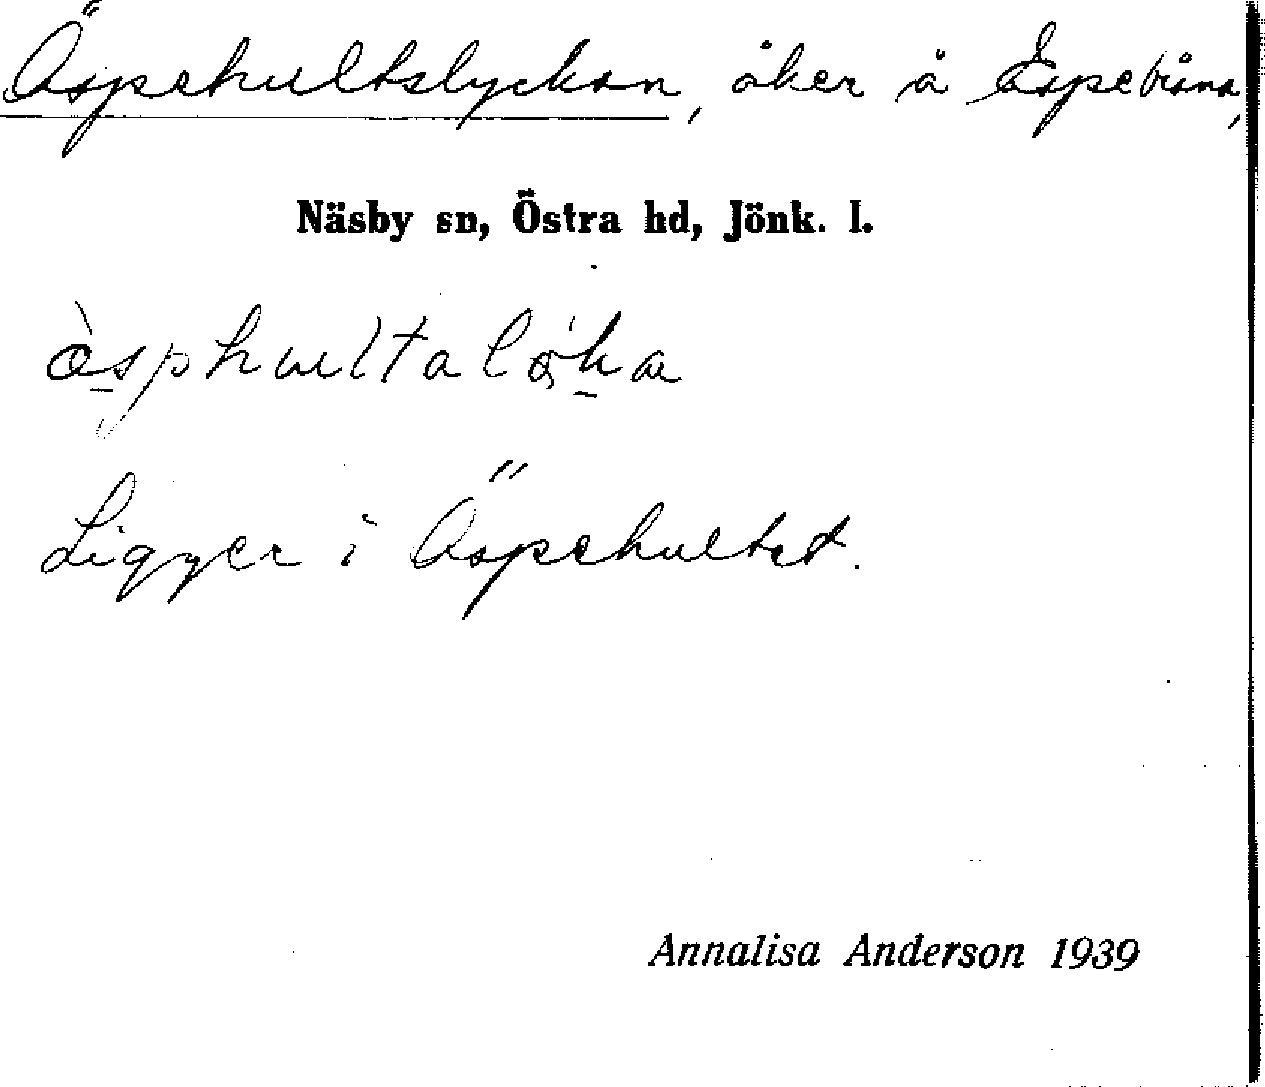 Äspehultslyckan, åker å Espebråna,
Näsby sn, Östra hd, Jönk. l.
Ligger i Äspehultet.
Annalisa Anderson 1939